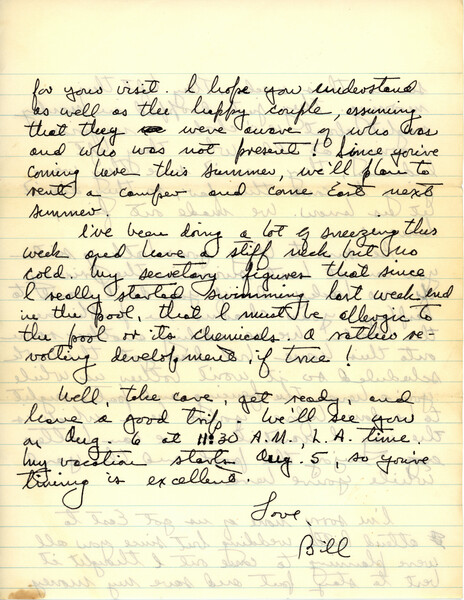 for your visit. I hope you understand
as well as the happy couple, assuming
that they were aware of who was
and who was not present! Since you've
coming here this summer, we'll plan to
rent a camper and come East next
summer.
I've been doing a lot of sneezing this
week and have a stiff neck but no
cold. My secretary figures that since
I really started swimming last week end
in the pool, that I must be allergic to
the pool or its chemicals. A rather re-
volting development, if true!
Well, take care, get ready, and
have a good trip. We'll see you
on Aug. 6 at 11:30 A.M., L.A. time.
My vacation starts Aug. 5, so you've
timing is excellent.
Love,
Bill